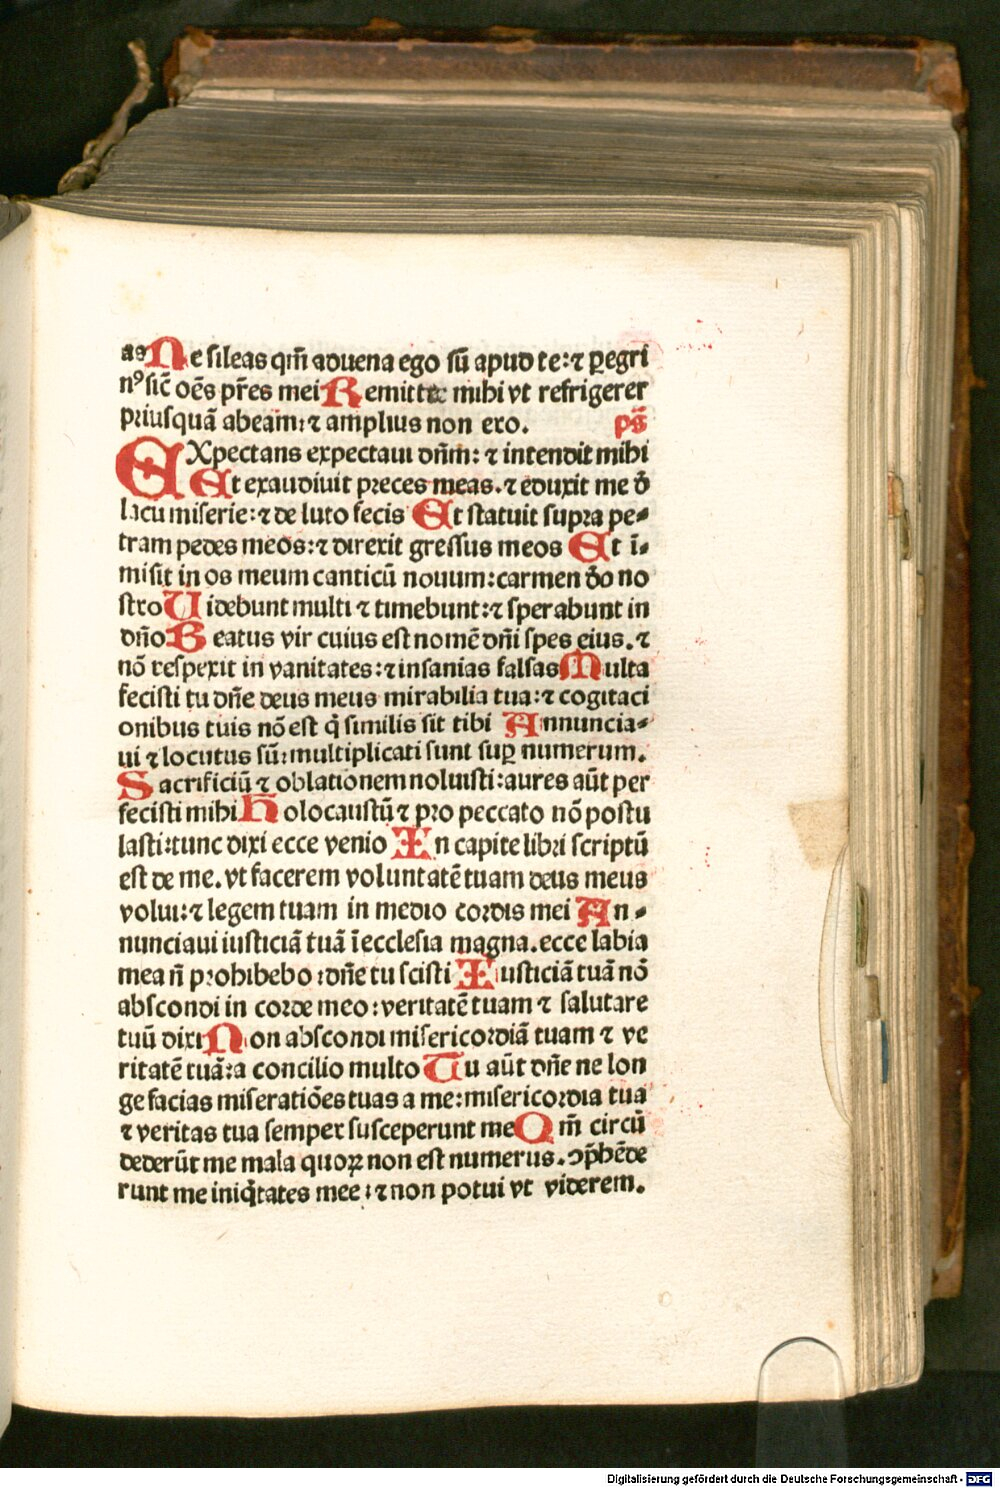 as Ne sileas qm̄ aduena ego sū apud te:⁊ ꝑegri
nꝰ sic̄ oēs pr̄es mei Remitte mihi vt refrigerer
priusquā abeam:⁊ amplius non ero. ps̄
EXpectans expectaui dn̄m: ⁊ intendit mihi
Et exaudiuit preces meas.⁊ eduxit me d̄
lacu miserie:⁊ de luto fecis Et statuit supra pe-
tram pedes meos:⁊ direxit gressus meos Et ī-
misit in os meum canticū nouum:carmen d̄o no
stro Uidebunt multi ⁊ timebunt:⁊ sperabunt in
dn̄o Beatus vir cuius est nomē dn̄i spes eius.⁊
nō respexit in vanitates:⁊ insanias falsas Multa
fecisti tu dn̄e deus meus mirabilia tua:⁊ cogitaci
onibus tuis nō est q̄ similis sit tibi Annuncia-
ui ⁊ locutus sū:multiplicati sunt suꝑ numerum.
Sacrificiū ⁊ oblationem noluisti:aures aūt per
fecisti mihi Holocaustū ⁊ pro peccato nō postu
lasti:tunc dixi ecce venio In capite libri scriptū
est de me.vt facerem voluntatē tuam deus meus
volui:⁊ legem tuam in medio cordis mei An-
nunciaui iusticiā tuā ī ecclesia magna.ecce labia
mea n̄ prohibebo :dn̄e tu scisti Iusticiā tuā nō
abscondi in corde meo:veritatē tuam ⁊ salutare
tuū dixi Non abscondi misericordiā tuam ⁊ ve
ritatē tuā:a concilio multo Tu aūt dn̄e ne lon
ge facias miseratiōes tuas a me:misericordia tua
⁊ veritas tua semper susceperunt me Qm̄ circū
dederūt me mala quoꝝ non est numerus.ↄp̄hēde
runt me iniq̇tates mee:⁊ non potui vt viderem.
Digitalisierung gefördert durch die Deutsche Forschungsgemeinschaft - DFG